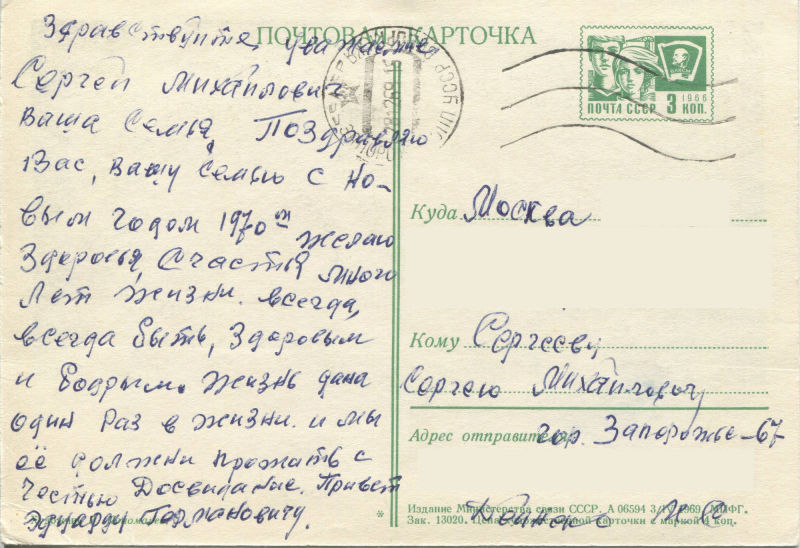 ПОЧТОВАЯ КАРТОЧКА
Здравствуйте, уважаемый
Сергей Михайлович
ваша семья, Поздравляю
Вас, вашу семью с но-
вым годом 1970ᵐ желаю
Здоровья, Счастья много
лет жизни. всегда,
всегда быть, здоровым
и бодрым. Жизнь дана
один раз в жизни. и мы
её должни прожать с
Честью Досвидание. Привет
Эдуарду Германовичу.
ПОЧТА СССР 3 КОП.
1966
Куда Москва
Кому Сергееву
Сергею Михайловичу
Адрес отправителя: гор. Запорожье-67
Издание Министерства связи СССР. А 06594 3/IV 1969. МПФГ.
Зак. 13020. Цена художественной карточки с маркой 4 коп.